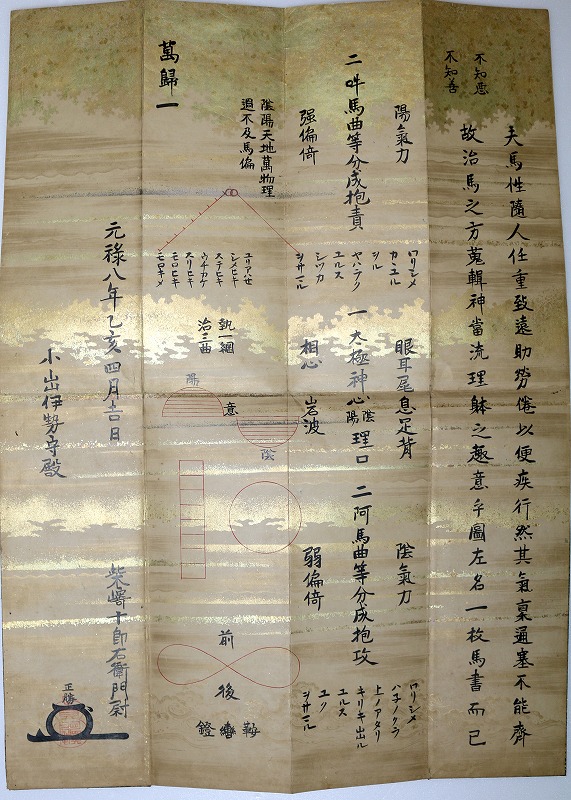 不知悪
不知善
夫馬性隨人任重致遠助勞倦以便疾行然其氣稟通塞不能齊
故治馬之方蒐輯神當流理躰之趣意乎圖左名一枚馬書而已
陽氣力
眼耳尾息足背
陰氣力
二吽馬曲等分成抱責
ワリシメ
カユル
シル
ヤハラク
ユルス
シツカ
シサール
一太極神心陰陽理口
二阿馬曲等分成抱攻
ワリシメ
ハネノクラ
上ノアタリ
キリキ出ル
ユルス
ユク
シサール
强偏倚
相心
岩波
弱偏倚
陰陽天地萬物理
過不及馬偏
萬歸一
ユリアハせ
シメヒキ
ステヒキ
ウチカケ
スリヒキ
モロヒキ
モロキメ
執一綱
治三曲
陽
意
陰
前
後
鞍
轡
鐙
元禄八年乙亥四月吉日
柴﨑十郎右衛門尉
正勝
小出伊勢守殿